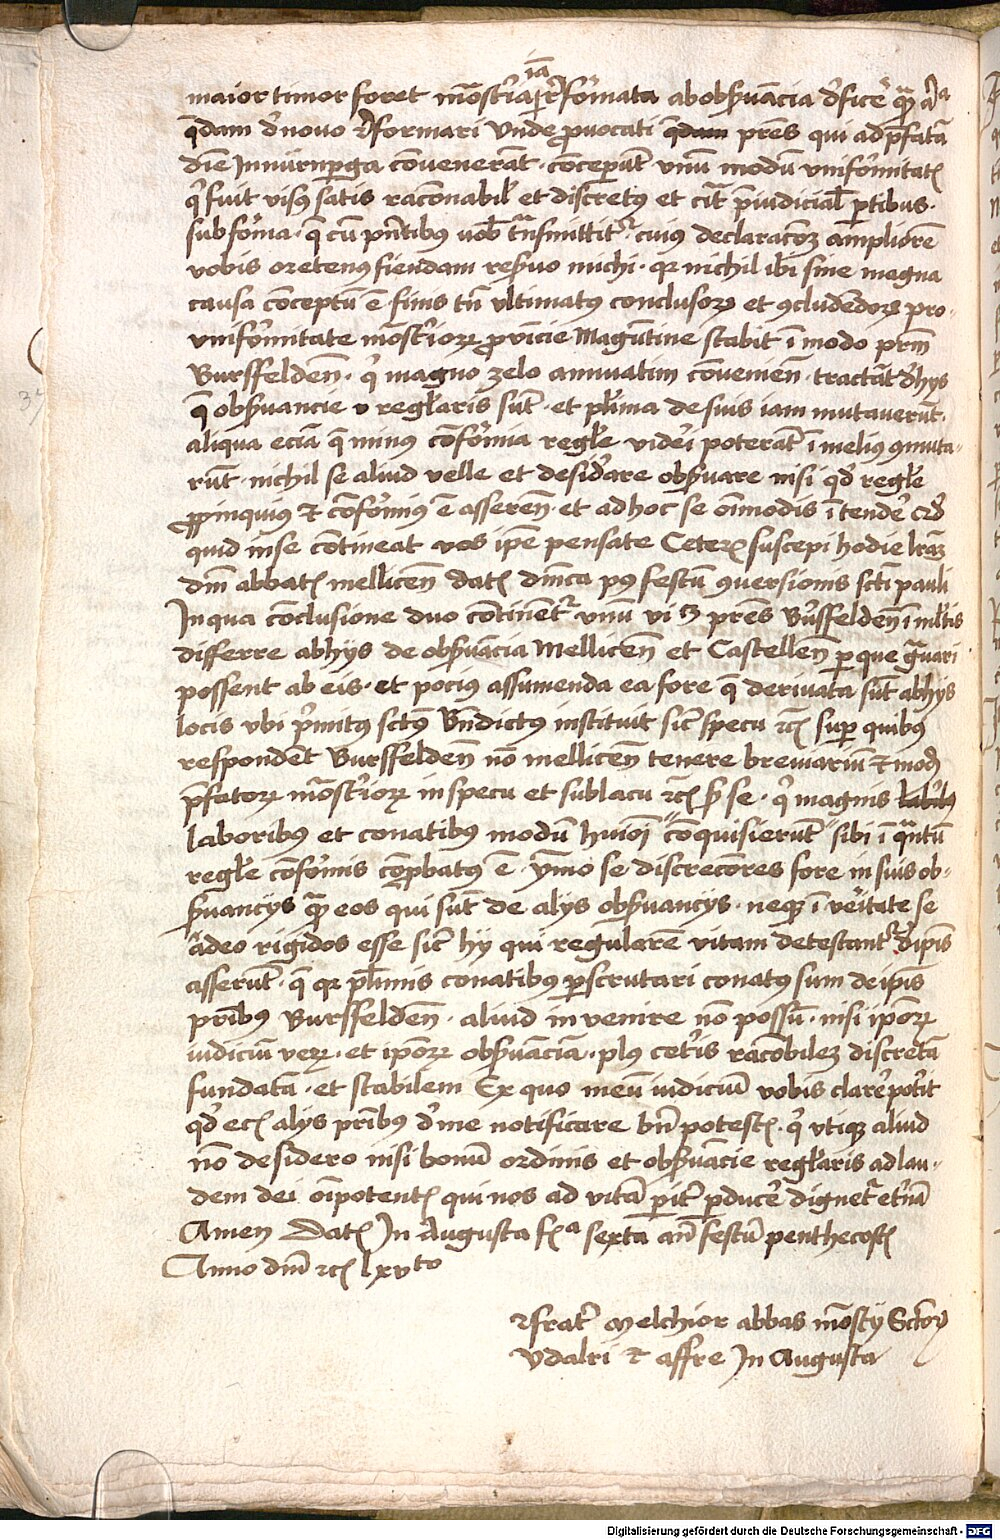 iā
maior timor foret mōstīa p̱ rēfoīmata ab obṣuācia dēficē q̄ȝ aliā
q̄dam dēnouo rēformari vnde ꝓuocati prēs qui ad p̄fatā
diē In nürnp̱ga cōuenerāt · cōcep̱ūt vnū modū vniformitatꝭ
qͥ fuit visꝯ satis racōnabilꝭ et discretꝯ et cit̄ p̄iudiciālꝭ p̱tibus ·
sub foīma · q̄ cū pn̄tibus vob̄ trāsmittit᷑ · cuiꝯ declaracōȝ ampliorē
vobis oretenꝯ fiendam reṣuo michi · qꝛ nichil ibi sine magna
causa cōceptū ē finis tn̄ vltimatꝯ conclusoꝝ et ꝯcludēdoꝝ pro-
vniformitate mōstīorꝝ ꝓuīcie Magūtine stabit ī modo prm̄
Bursffeldēn̄ · qͥ magno zelo annuatim cōueniēn̄ · tractāt dē hys
q̄ obṣuancie v regl̄aris sūt · et pl̄ima de suis iam mutauerūt ·
aliqua eciā q̄ minꝯ cōformia regl̄e vidēi poterāt ī meliꝯ ꝯmuta-
rūt · nichil se aliud velle et desidēare obṣuare nisi qd̄ regl̄e
ꝓpinquiꝯ ⁊ cōformiꝯ ē asserēn̄ · et ad hoc se oīmodis ītendē
quid in se cōtineat vos ip̄e pensate Ceteꝝ suscepi hodie lrāȝ
dn̄i abbatꝭ mellicēn̄ datꝭ dn̄ica pꝰ festū ꝯuersionis scti pauli
In qua cōclusione duo cōtinēt᷑ vnū vꝫ prēs Būsffeldēn̄ ī ml̄tis
differre ab hys de obṣuācia Mellicēn̄ et Castellēn̄ p̱ que gͣuari
possent ab eis · et pociꝯ assumenda ea fore q̄ deriuata sūt ab hys
locis vbi p̄mitꝯ sctꝯ Bn̄dictꝯ instituit sic̄ specu ⁊cꝭ sup̱ quibꝯ
respondēt Bursffeldēn̄ nō mellicēn̄ tenere breuiariū ⁊ modꝭ
p̄fatoꝝ mōstīoꝝ in specu et sublacu ⁊cꝭ ꝑ se · qͥ magnis
laboribꝯ et conatibꝯ modū huiōi cōquisierūt sibi ī qͣntū
regl̄e cōformis cōp̱batꝯ ē · ymo se discrecōres fore in suis ob-
ṣuancys q̄ȝ eos qui sūt de alys obṣuancys · neqꝫ ī vēitate se
adeo rigidos esse sic̄ hy qui regularē vitam detestant᷑ dē ip̄is
asserūt · q̄ qꝛ pl̄imis conatibꝯ p̱scrutari conatꝯ sum de ip̄is
prībꝯ Bursffeldēn̄ · aliud inuenire nō possū · nisi ip̄oꝝ
iudiciū verꝝ · et ip̄oꝝ obṣuāciā · plꝯ cetīs racōbileȝ discretā
fundatā · et stabilem Ex quo meū iudiciū vobis clarē pot̄it
qd̄ ecꝭ alys prībꝯ dē me notificare bn̄ potestꝭ · qͥ vtiqꝫ aliud
nō desidero nisi bonū ordinis et obṣuācie regl̄aris ad lau-
dem dei oīpotentꝭ qui nos ad vitā p̱it̄ p̱ducē dignet᷑ et̄nā
Amen Datꝭ In Augusta fꝭᵃ sexta an̄ festū penthecostꝭ
Anno dn̄i ⁊cꝭ lxvᵗᵒ
frat̄ Melchior abbas mōstīj Sctoꝝ
Vdalri ⁊ affre In Augusta
37
Digitalisierung gefördert durch die Deutsche Forschungsgemeinschaft - DFG